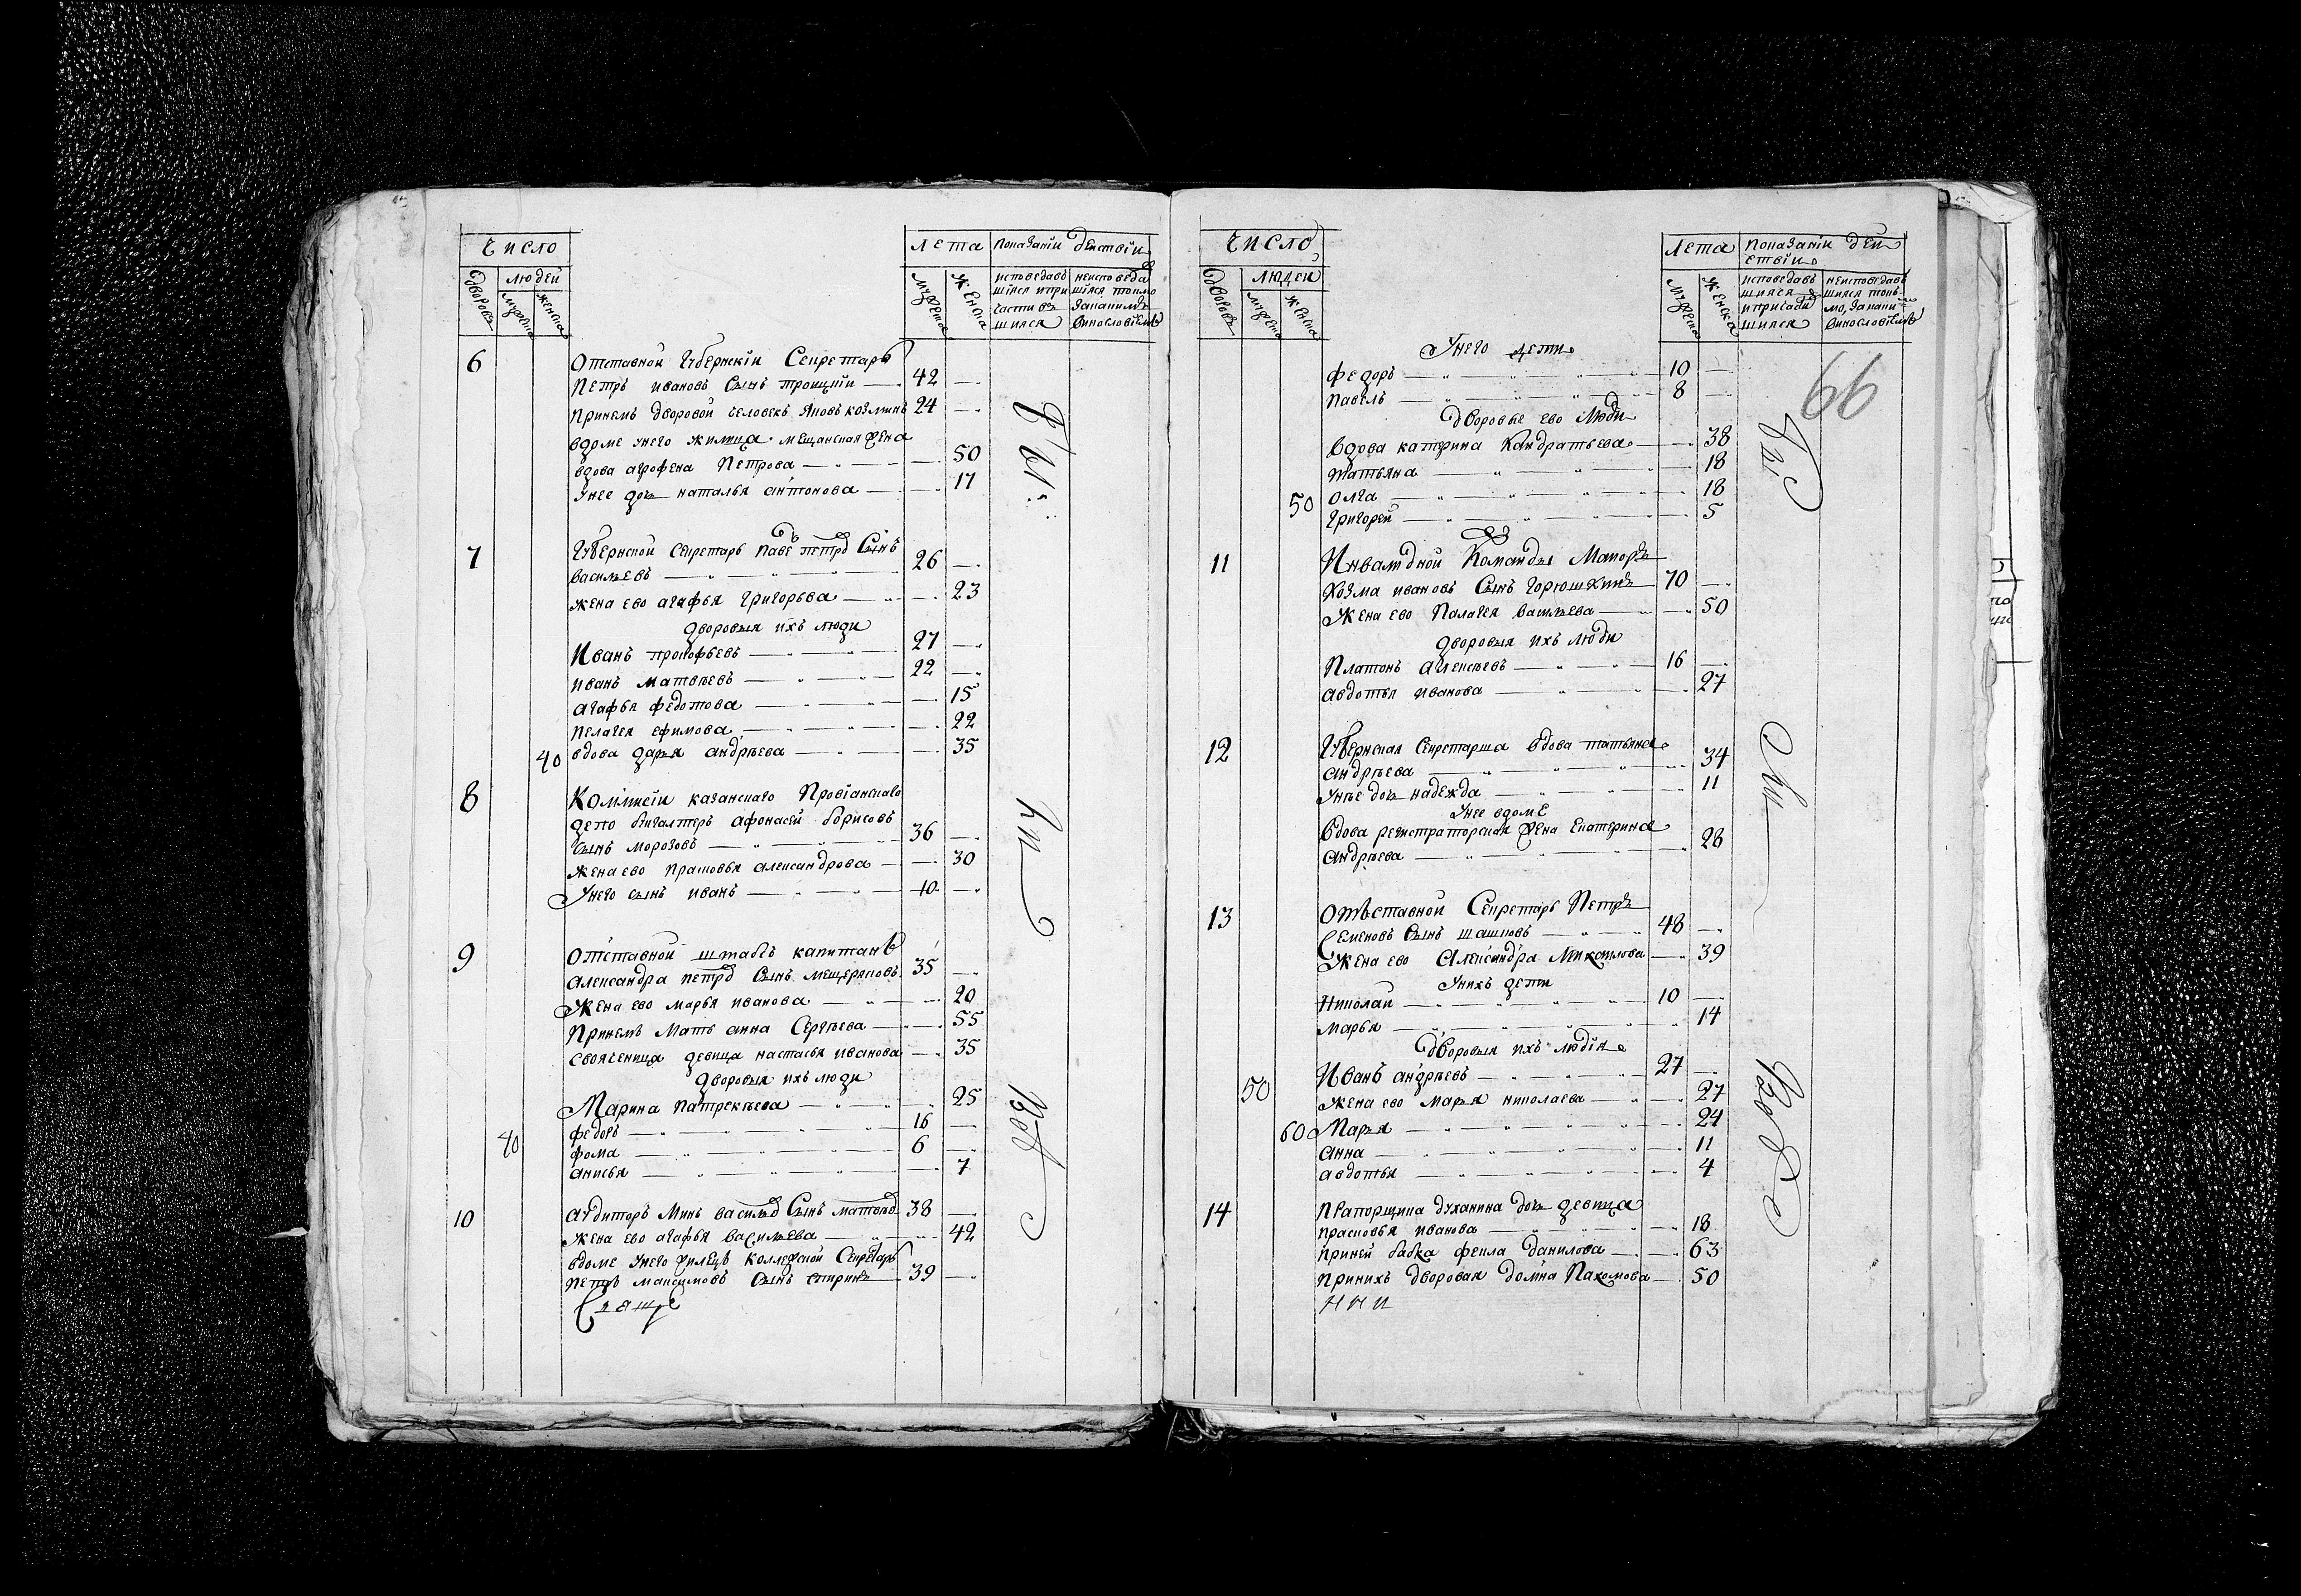 Число
Лета показаніи действіи
дворовъ
людей
мужеска
женска
мужеска
женска
исповедавъ неисповеда
шіяся ипри шіяся токмо
частивъ запанимъ
шияся винословіемъ
6 Отставной губернскіи Секретарь
Петръ ивановъ Сынъ троицкіи 42
Принемъ дворовой человекъ яковъ козминъ 24
вдоме унего жилица мещанская жена
вдова агрофена Петрова 50
унее дочь наталья антонова 17
7 Губернской Секретарь Паве петро Сынъ
васильевъ 26
жена ево агафья григорьва 23
дворовыя ихъ люди
Иванъ прокофьевъ 27
иванъ матвѣевъ 22
агафья федотова 15
пелагея ефимова 22
40 вдова дарья андрѣева 35
8 Комисеіи казанскаго Провіанскаго
депо бухгалтеръ афонасей борисовъ
Сынъ морозовъ 36
жена ево прасковья александрова 30
Унего сынъ иванъ 10
9 Отставной штабсъ капитанъ
александра петро Сынъ мещеряковъ 35
Жена ево марья иванова 20
Принемъ мать анна Сергѣева 55
свояченица девица настасья иванова 35
дворовыя ихъ люди
Марина Патрекѣева 25
федоръ 16
40 фома 6
анисья 7
10 аудиторъ Минъ василье Сынъ 38
жена ево агафья васильева 42
вдоме унего жилецъ коллежской Секретарь
петръ максимовъ Сынъ 39
Свящ
Число
Лета Показаніи деи
ствіи
дворовъ
людеи
мужеска
женска
мужеска
женска
исповедавъ неисповедавъ
шияся шияся токъ
ипричасти мо, запани
шияся винословіемъ
66
Унего дети
федоръ 10
павелъ 8
дворовые ево люди
вдова катерина Кандратьева 38
татьяна 18
50 олга 18
григорей 5
11 Инвалидной Команды Маиоръ
Козма ивановъ Сынъ горюшкинъ 70
Жена ево Палагея васильева 50
дворовыя ихъ люди
Платонъ алексѣевъ 16
авдотья иванова 27
12 Губернская Секретарша вдова татьяна
андрѣева 34
унѣе дочь надежда 11
унее вдоме
вдова регистраторская жена Екатерина
андрѣева 28
13 Отъставной Секретарь Петръ
Семеновъ Сынъ шашковъ 48
Жена ево Александра Михаилова 39
Унихъ дети
Николай 10
марья 14
дворовыя ихъ людія
Иванъ андрѣевъ 27
50 жена ево марья николаева 27
60 Марья 24
анна 11
авдотья 4
14 Прапорщика духанина дочь девица
прасковья иванова 18
приней бабка фекла данилова 63
принихъ дворовая домна Пахомова 50
нни